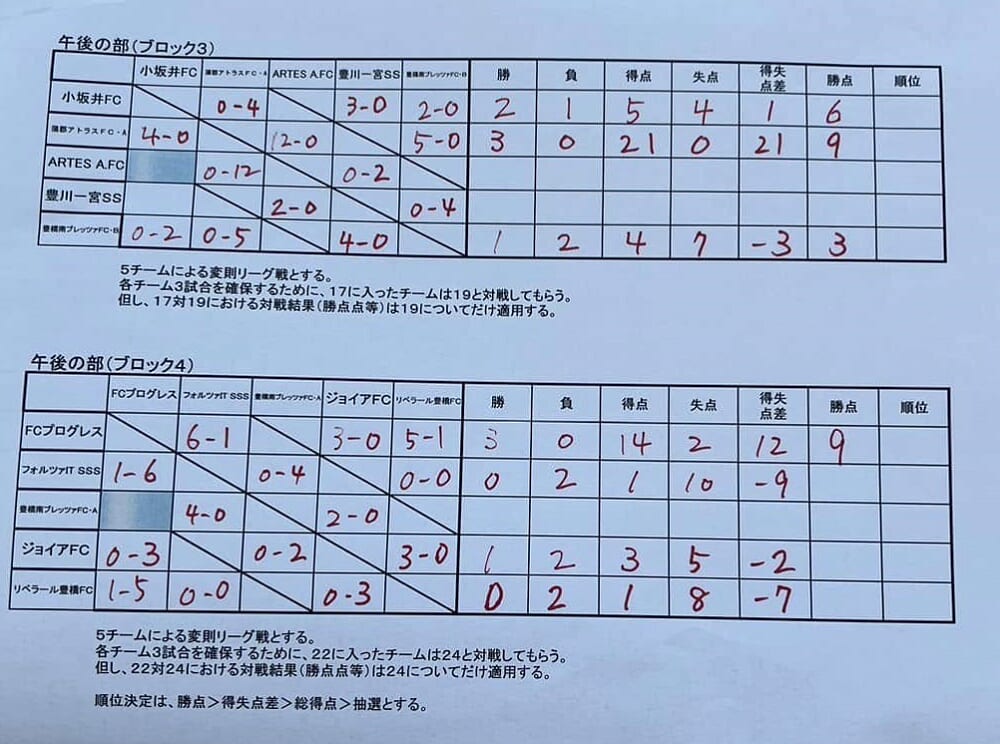 午後の部(ブロック3)
小坂井FC 蒲郡アトラスFC・A ARTES A.FC 豊川一宮SS 豊橋南プレッツァFC・B 勝 負 得点 失点 得失点差 勝点 順位
小坂井FC 0-4 3-0 2-0 2 1 5 4 1 6
蒲郡アトラスFC・A 4-0 12-0 5-0 3 0 21 0 21 9
ARTES A.FC 0-12 0-2
豊川一宮SS 2-0 0-4
豊橋南プレッツァFC・B 0-2 0-5 4-0 1 2 4 7 -3 3
5チームによる変則リーグ戦とする。
各チーム3試合を確保するために、17に入ったチームは19と対戦してもらう。
但し、17対19における対戦結果(勝点点等)は19についてだけ適用する。
午後の部(ブロック4)
FCプログレス フォルツァIT SSS 豊橋南プレッツァFC・A ジョイアFC リベラール豊橋FC 勝 負 得点 失点 得失点差 勝点 順位
FCプログレス 6-1 3-0 5-1 3 0 14 2 12 9
フォルツァIT SSS 1-6 0-4 0-0 0 2 1 10 -9
豊橋南プレッツァFC・A 4-0 2-0
ジョイアFC 0-3 0-2 3-0 1 2 3 5 -2
リベラール豊橋FC 1-5 0-0 0-3 0 2 1 8 -7
5チームによる変則リーグ戦とする。
各チーム3試合を確保するために、22に入ったチームは24と対戦してもらう。
但し、22対24における対戦結果(勝点点等)は24についてだけ適用する。
順位決定は、勝点>得失点差>総得点>抽選とする。